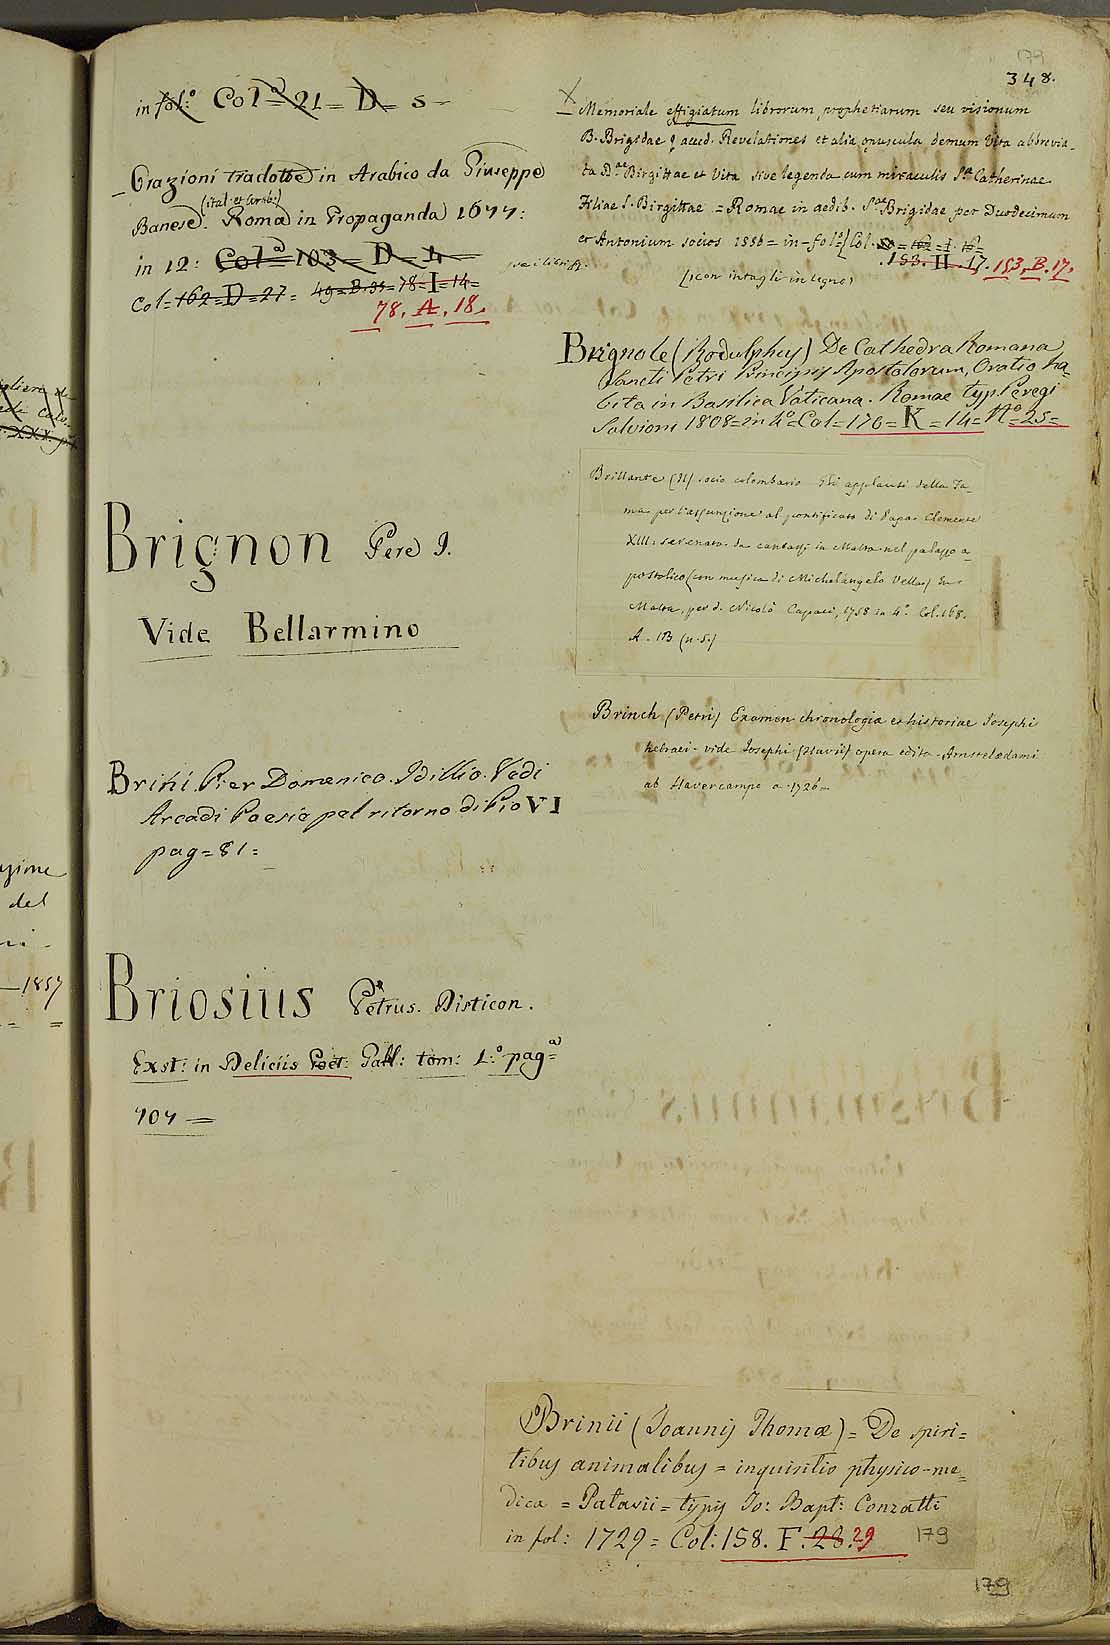 179
348.
in fol:º Colª= 21= D= 5=
Orazioni tradotte in Arabico da Giuseppe
(ital. et Arab:)
Banese. Roma in Propaganda 1677:
in 12: Colª=103= D= 4=
Col=162=D=27= 49=B.35=78=I=14=
78. A. 18.
Brignon Pere J.
Vide Bellarmino
Brini Pier Domenico. Idillio. Vedi
Arcadi Poesie pel ritorno di Pio VI
pag=81=
Briosius Petrus. Disticon.
Exst: in Deliciis Poet: Gall: tom: 1.º pagª=
707=
Memoriale effigiatum librorum prophetiarum seu visionum
B. Brigidae accd. Revelationes et alia opuscula demum Vita abbrevia-
ta Dae Birgittae et Vita sive legenda cum miraculis Sae Catherinae
Filiae S. Birgittae = Romae in aedib. Sae Brigidae per Duodecimum
et Antonium socios 1556= in-folº/ Col.
153. H. 17. 153. B. 17.
(con intagli in legno)
Brignole (Rodulphus) De Cathedra Romana
Sancti Petri Principis Apostolorum, Oratio ha-
bita in Basilica Vaticana. Romae typ. Peregi
Salvioni 1808=in 4º=Col=176=K=14=Nº=25=
Brillante (Il) socio colombario Gli applausi della Fa-
ma per l'assunzione al pontificato di Papa Clemente
XIII. serenata da cantarsi in Malta nel palazzo a-
postolico (con musica di Michelangelo Vella) In
Malta, per d. Nicolò Capaci, 1758 in 4º. Col. 168.
A. 13 (n.5.)
Brinch (Petri) Examen chronologiae et historiae Josephi
hebraei- vide Josephi (Flavii) opera edita Amstelaedami
ab Havercampo a. 1726-
Brinii (Joannis Thomæ) = De spiri=
tibus animalibus = inquisitio physico-me=
dica = Patavii = typis Jo: Bapt: Conzatti
in fol: 1729= Col: 158. F. 28. 29
179
179